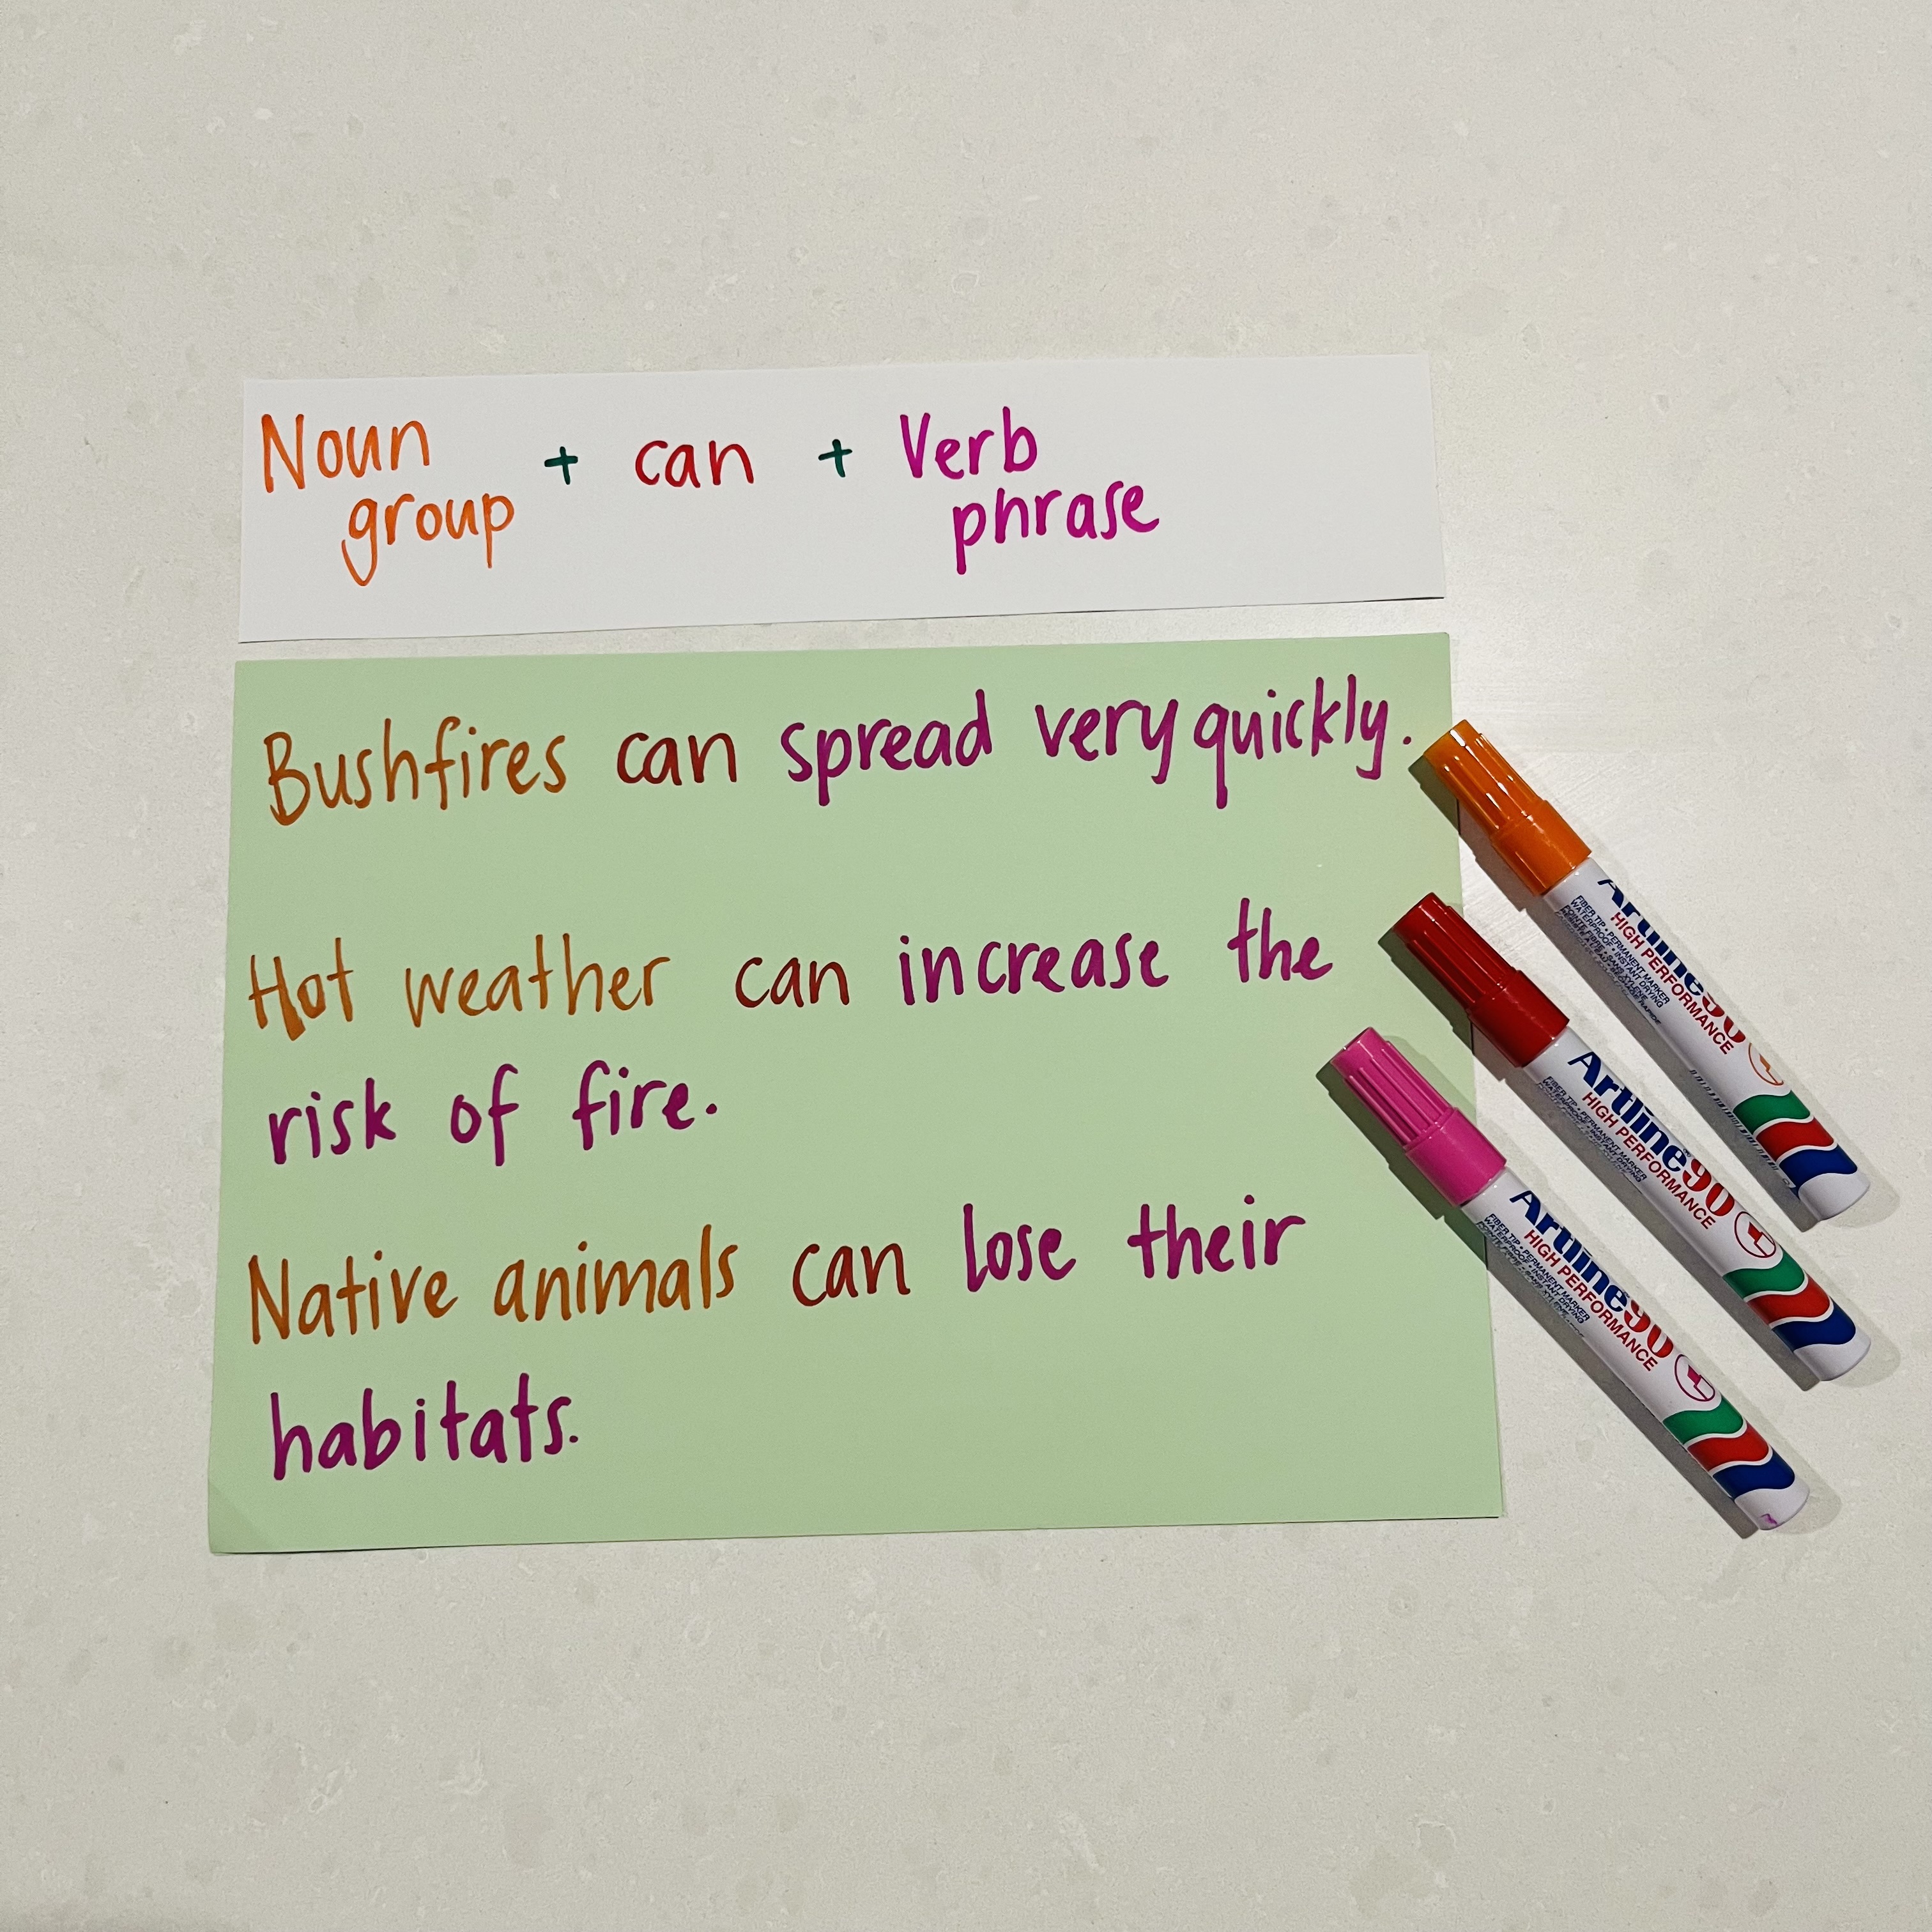 Noun + can + Verb
group phrase
Bushfires can spread very quickly.
Hot weather can increase the
risk of fire.
Native animals can lose their
habitats.
Artline 90
HIGH PERFORMANCE
Artline 90
HIGH PERFORMANCE
FIBER TIP • PERMANENT MARKER
WATERPROOF • INSTANT DRYING
Artline 90
HIGH PERFORMANCE
FIBER TIP • PERMANENT MARKER
WATERPROOF • INSTANT DRYING